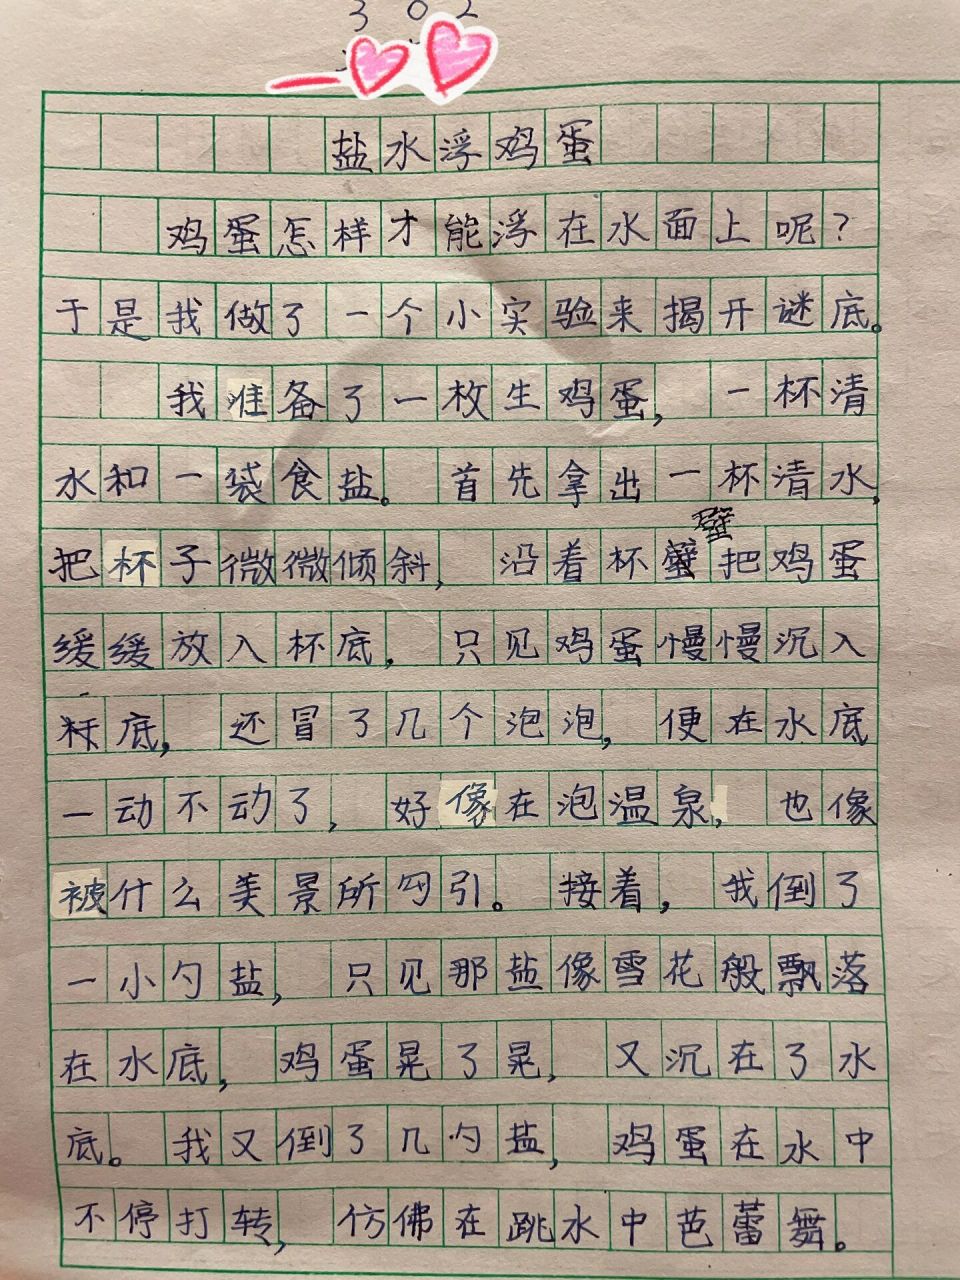 302
盐水浮鸡蛋
鸡蛋怎样才能浮在水面上呢？
于是我做了一个小实验来揭开谜底。
我准备了一枚生鸡蛋，一杯清
水和一袋食盐。首先拿出一杯清水，
把杯子微微倾斜，沿着杯壁把鸡蛋
缓缓放入杯底，只见鸡蛋慢慢沉入
杯底，还冒了几个泡泡，便在水底
一动不动了，好像在泡温泉，也像
被什么美景所勾引。接着，我倒了
一小勺盐，只见那盐像雪花般飘落
在水底，鸡蛋晃了晃，又沉在了水
底。我又倒了几勺盐，鸡蛋在水中
不停打转，仿佛在跳水中芭蕾舞。